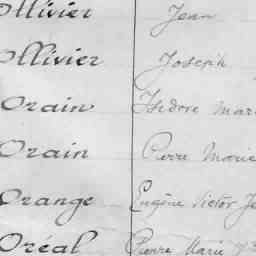 Ollivier Jean
Ollivier Joseph
Orain Isidore Mari
Orain Pierre Marie
Orange Eugène Victor Je
Oréal Pierre Marie